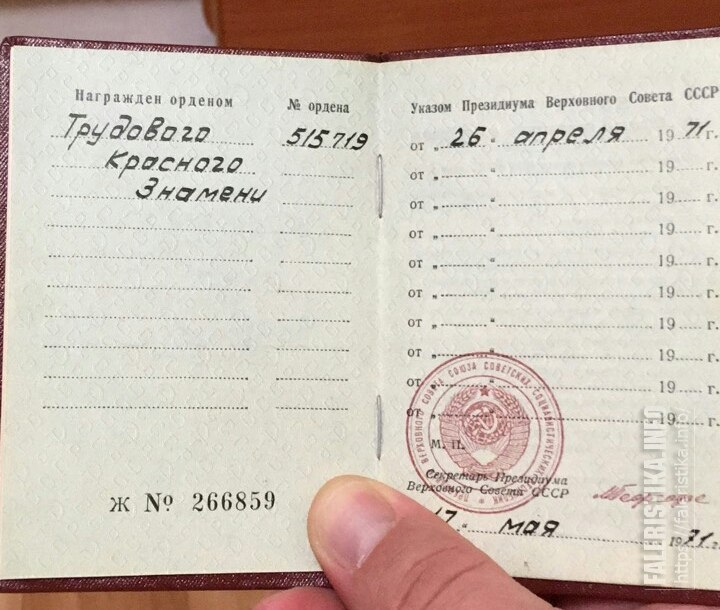 Награжден орденом
№ ордена
Трудового
515719
Красного
Знамени
Ж № 266859
Указом Президиума Верховного Совета СССР
от „ 26 “ апреля 1971 г.
от „ “ 19 г.
от „ “ 19 г.
от „ “ 19 г.
от „ “ 19 г.
от „ “ 19 г.
от „ “ 19 г.
от „ “ 19 г.
от „ “ 19 г.
от „ “ 19 г.
М. П.
Секретарь Президиума
Верховного Совета СССР
17 “ мая 1971 г.
FALERISTIKA.INFO
https://faleristika.info